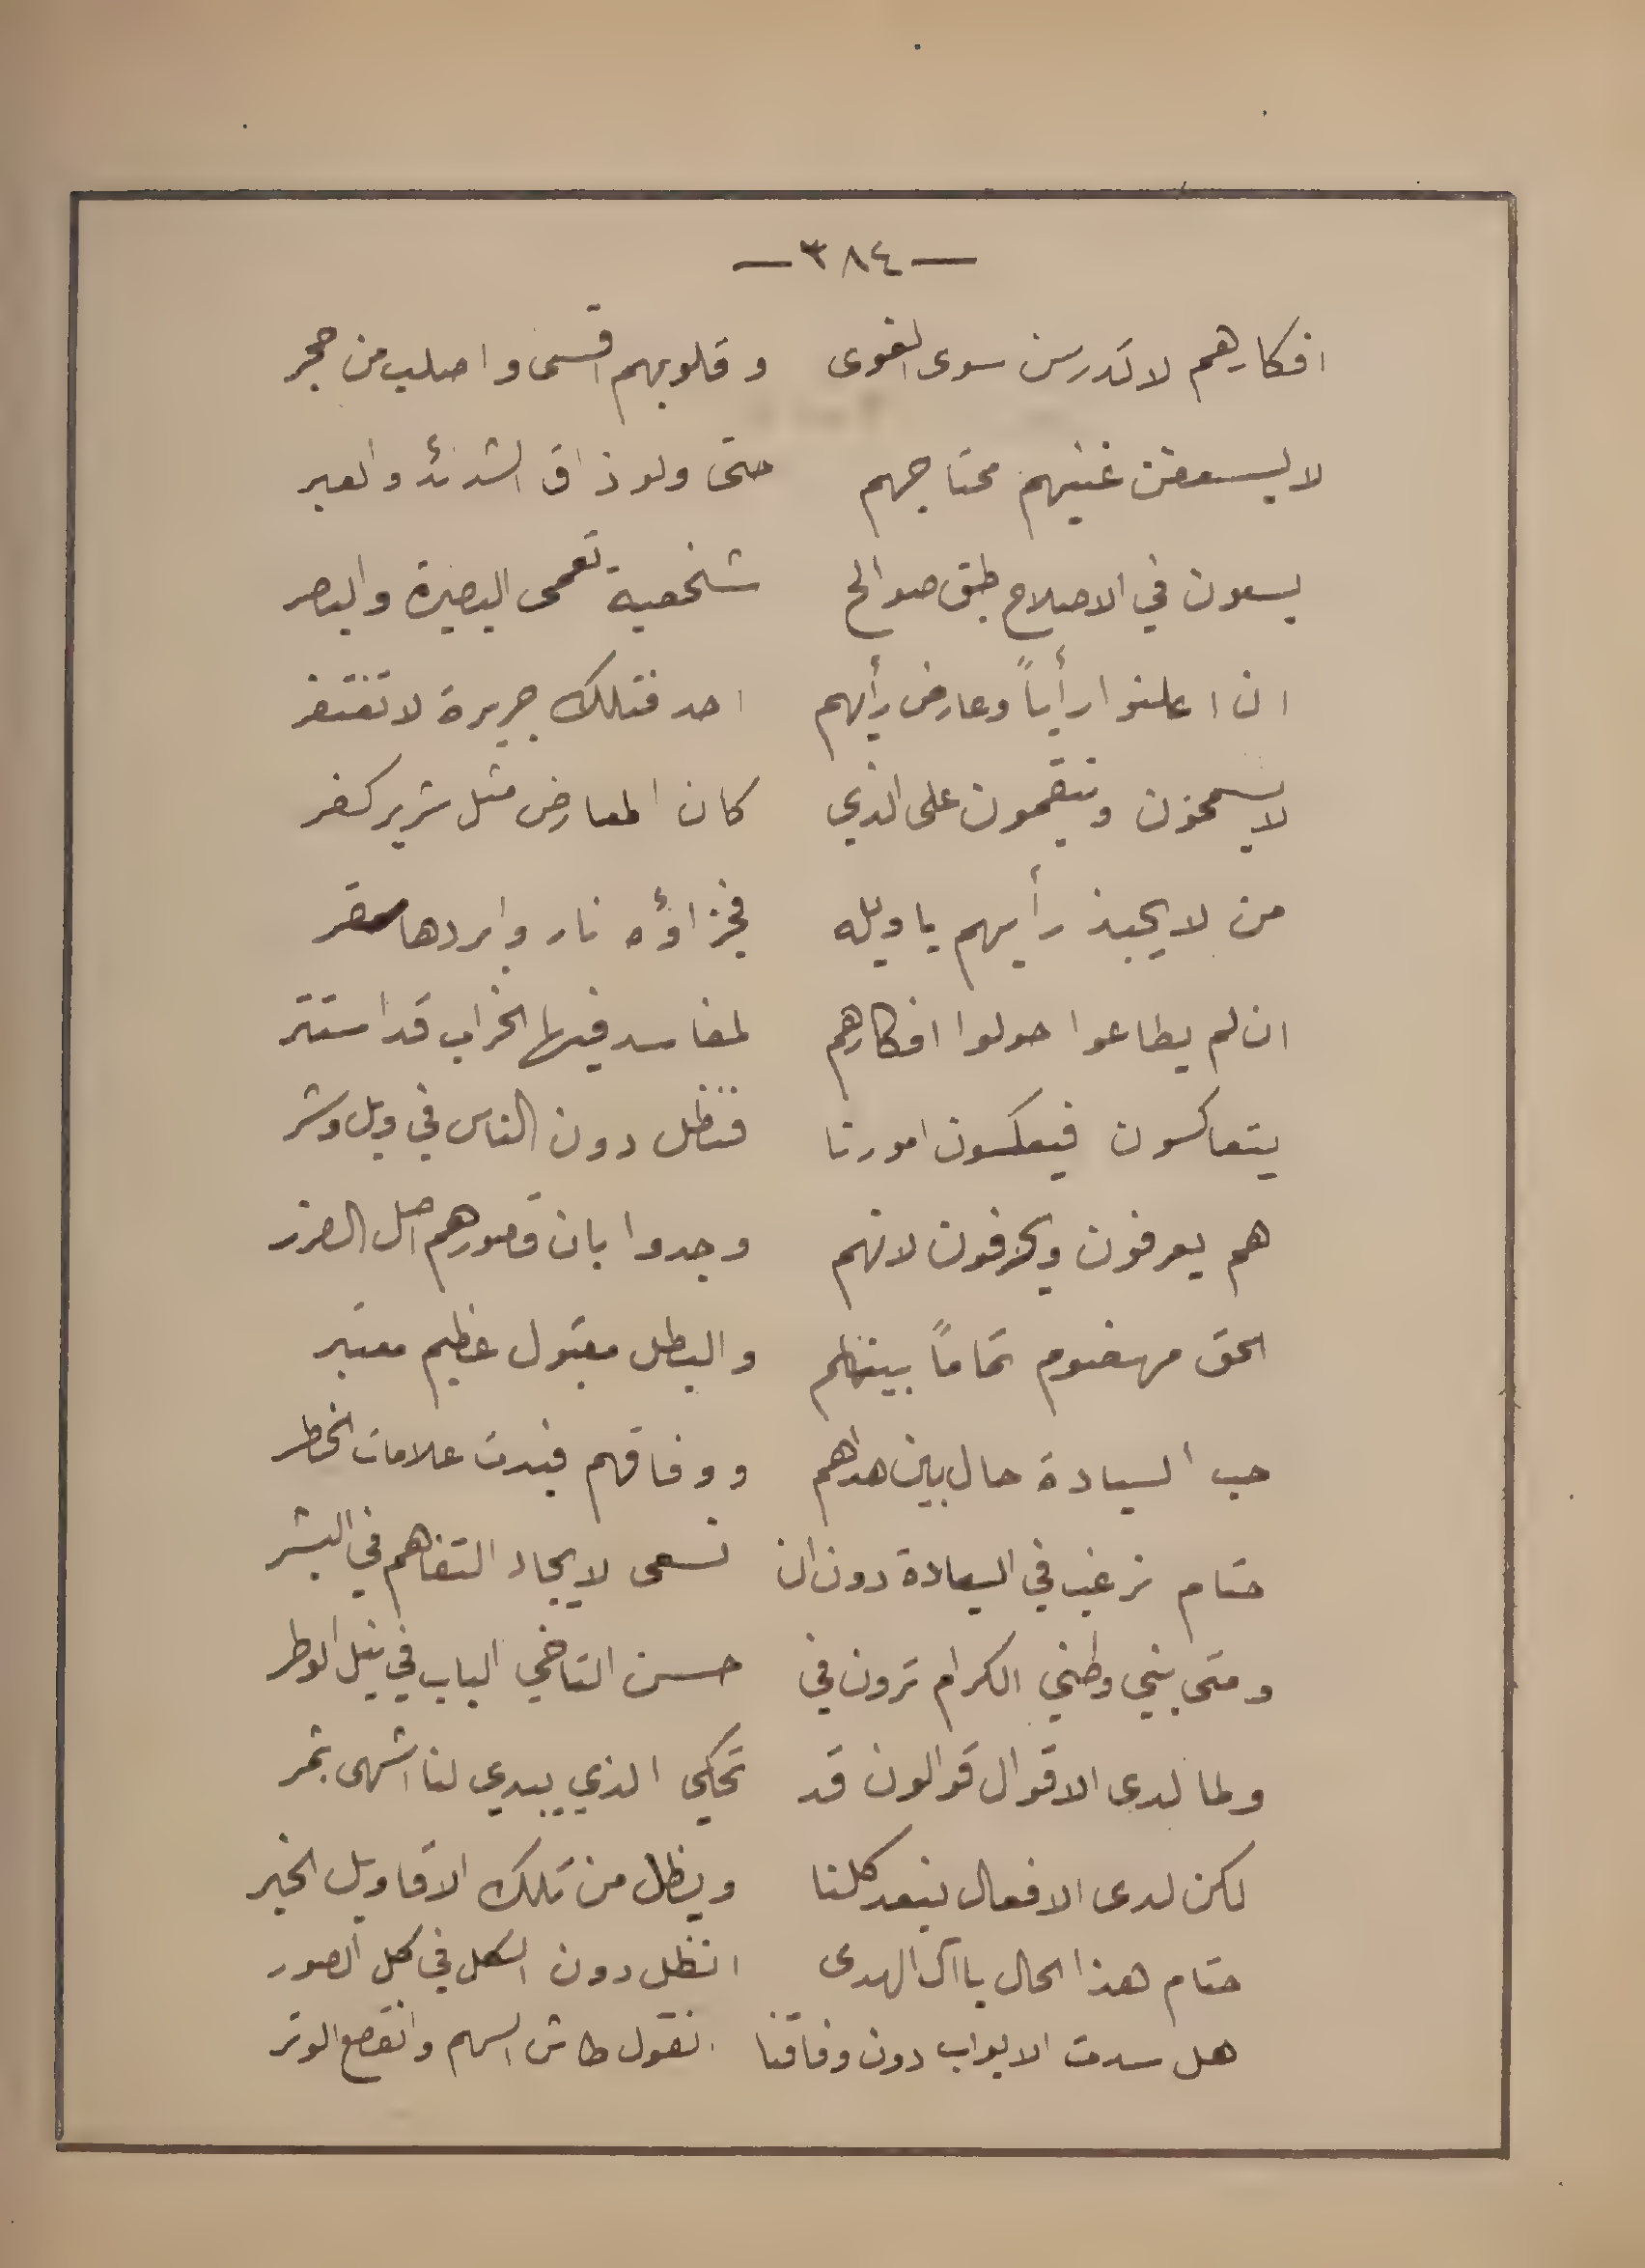 — ٣٨٤ —
افكارهم لا تدرسن سوى الغوى وقلوبهم اقسى واصلب من حجر
لا يسعفن غنيهم محتاجهم حتى ولو ذاق الشدئد والعبر
يسعون في الاصلاح طبق صوالح شخصية تعمى البصيرة والبصر
ان اعلنوا رأياً وعارض رأيهم احد فتلك جريرة لا تغتفر
لا يسمحون وينقمون على الذي كان المعارض مثل شرير كفر
من لا يحبذ رأيهم يا ويله فجزاؤه نار وابردها سقر
ان لم يطاعوا حولوا افكارهم لمفاسد فيها الخراب قد استتر
يتعاكسون فيعكسون امورنا فنظل دون الناس في ويل وشر
هم يعرفون ويحرفون لانهم وجدوا بان قصورهم اصل الضرر
الحق مهضوم تماماً بينهم والبطل مقبول عظيم معتبر
حب السيادة حال بين هداهم ووفاقهم فبدت علامات الخطر
حتام نرغب في السعادة دون ان نسعى لايجاد التفاهم في البشر
ومتى بني وطني الكرام ترون في حسن التاخي الباب في نيل الوطر
ولما لدى الاقوال قوالون قد تحكي الذي يبدي لنا اشهى ثمر
لكن لدى الافعال نبعد كلنا ويظل من تلك الاقاويل الخبر
حتام هذا الحال يا آل الهدى انظل دون الكل في كل الصور
هل سدت الابواب دون وفاقنا انقول طاش السهم وانقصع الوتر